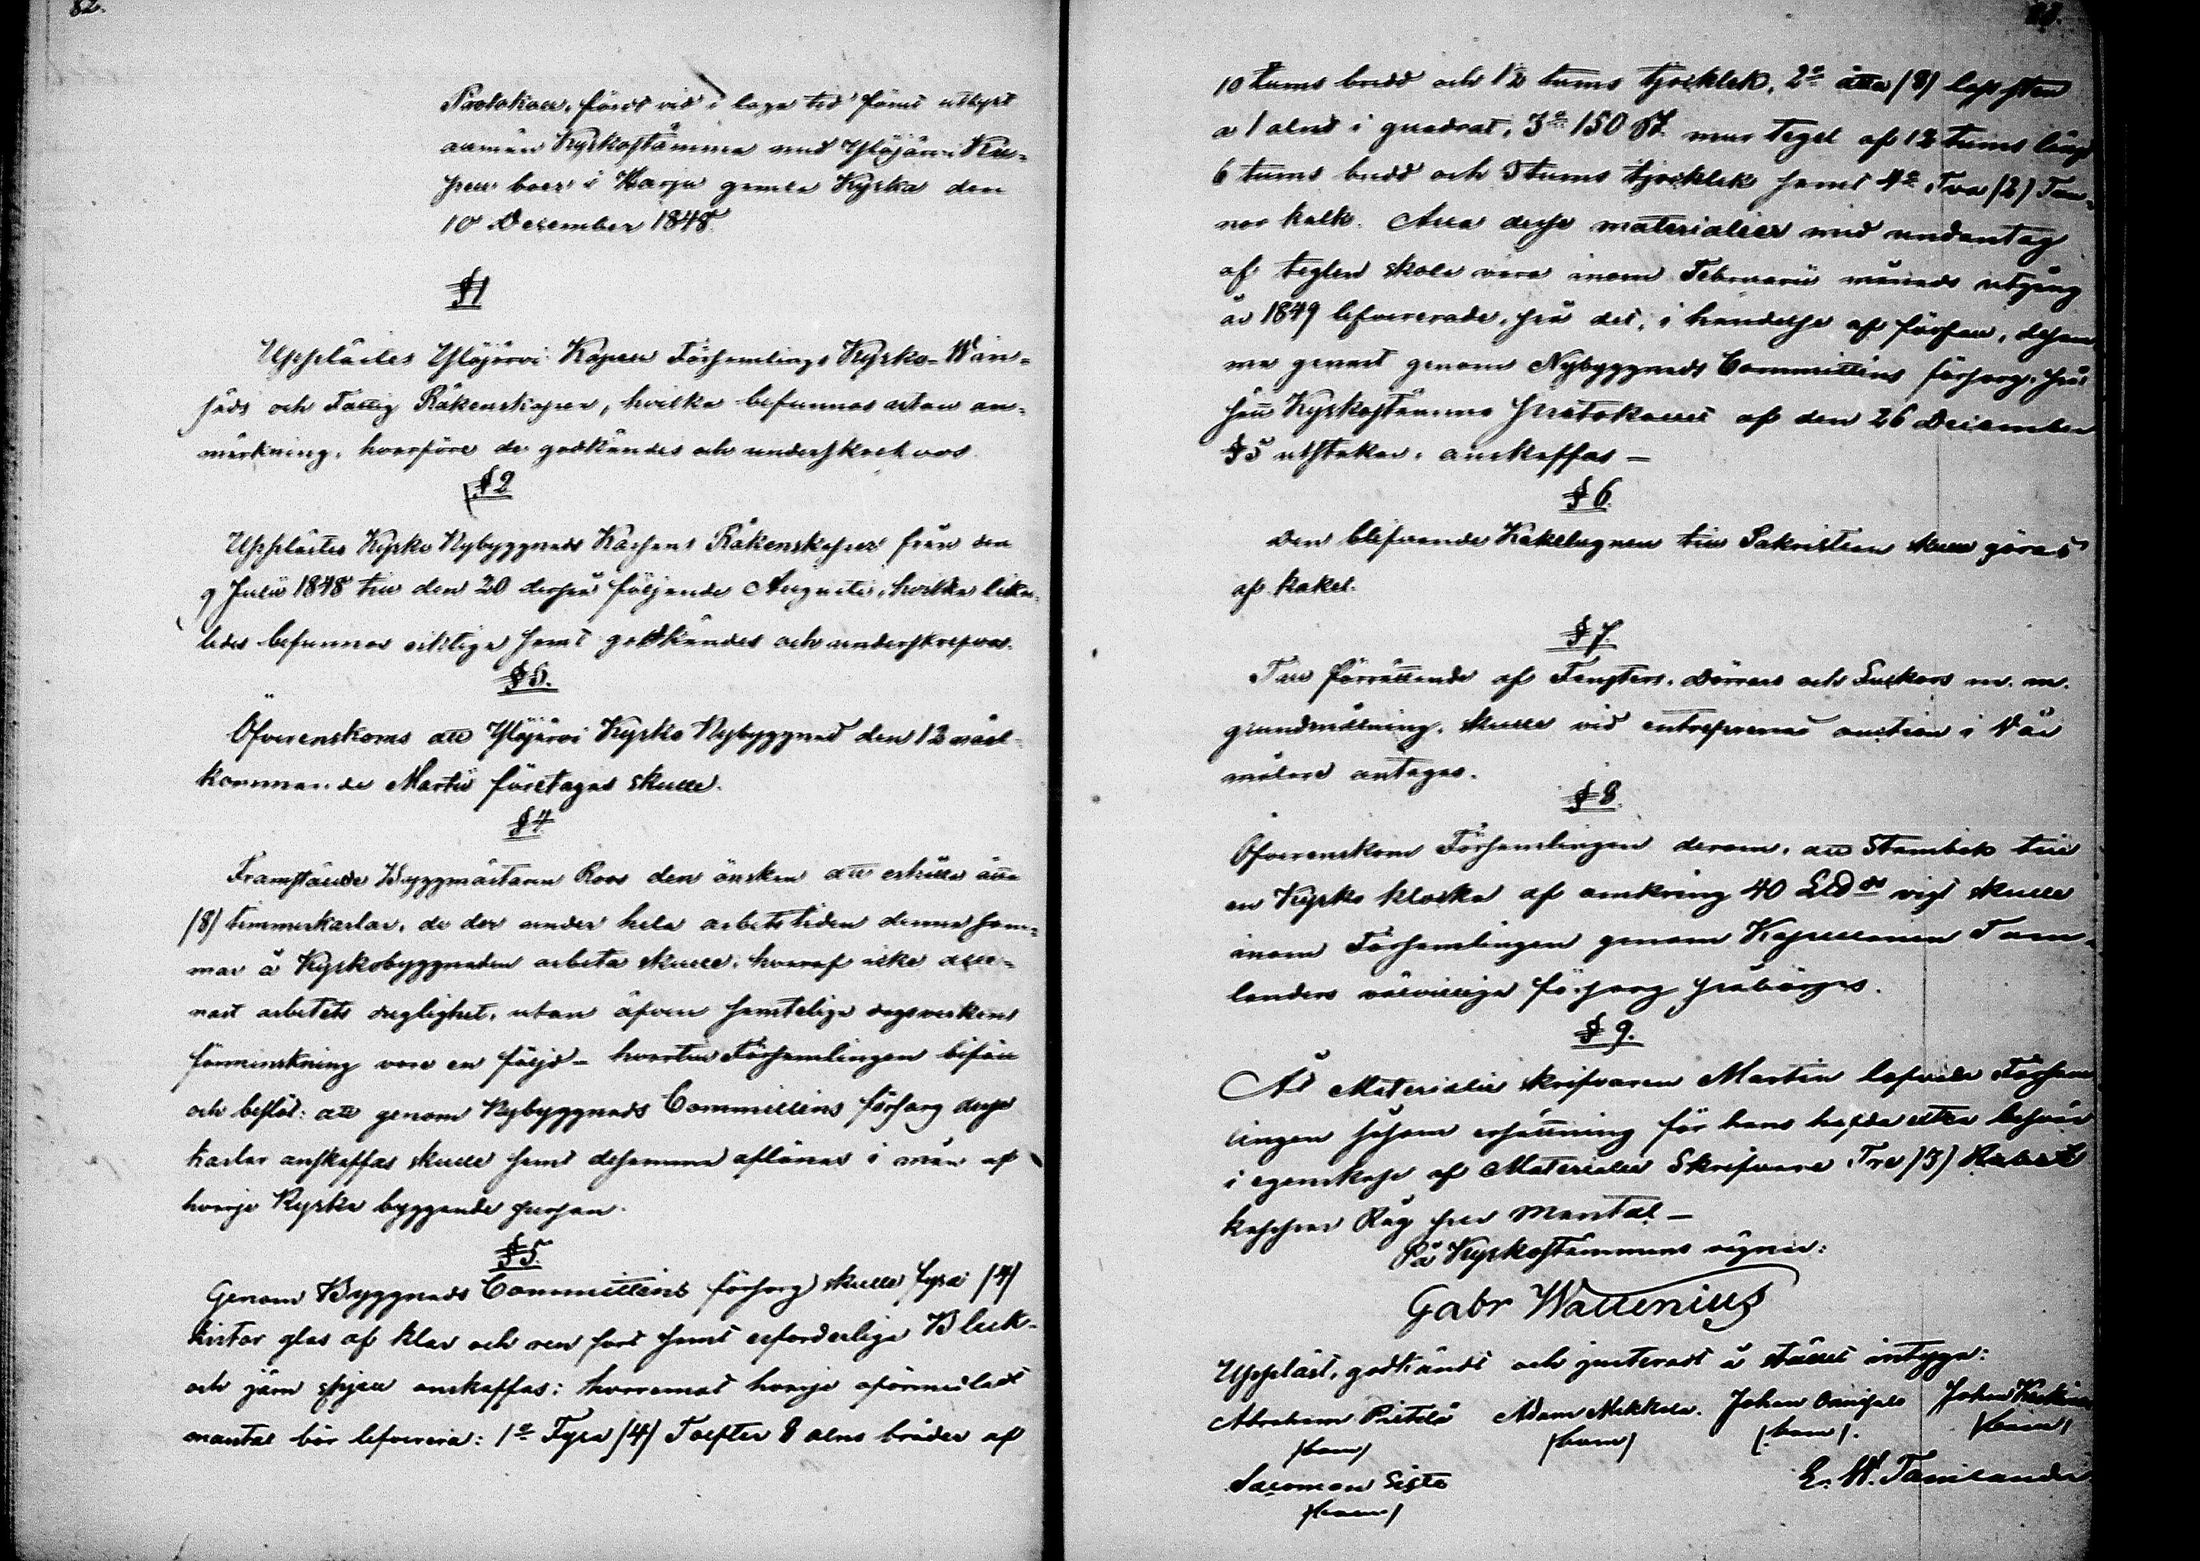 82.
Protokoll, fördt vid i laga tid förut utlyst
allmän Kyrkostämma med Ylöjärvi Ka-
pell boer i Harju gamla Kyrka den
10 December 1848.
§1
Upplästes Ylöjärvi Kapell Församlings Kyrko- Win-
säds och Fattig Räkenskaper, hvilka befunnos utan an-
märkning, hvarföre de godkändes och underskrefvos.
§2
Upplästes Kyrko Nybyggnads Kassans Räkenskaper från den
9 Julii 1848 till den 20 derpå följande Augusti, hvilka lika-
ledes befunnos riktiga samt godkändes och underskrefvos.
§3.
Öfverenskoms att Ylöjärvi Kyrko Nybyggnad den 12 näst-
kommande Martii företagas skulle.
§4
Framställde Byggmästaren Roos den önskan att erhålla åtta
(8) timmerkarlar, de der under hela arbetstiden denna som-
mar å Kyrkobyggnaden arbeta skulle, hvaraf icke alle-
nast arbetets duglighet, utan äfven samtelige dagsverkens
förminskning vore en följd – hvartill Församlingen biföll
och beslöt: att genom Nybyggnads Committéens försorg desse
karlar anskaffas skulle samt desamma aflönas i mån af
hvarje Kyrka byggande person.
§5.
Genom Byggnads Committéens försorg skulle fyra (4)
kistor glas af klar och ren sort samt erforderlige Bleck-
och järn spjell anskaffas; hvaremot hvarje oförmedladt
mantal bör lefverera: 1o Fyra (4) Tolfter 8 alns bräder af
83.
10 tums bredd och 1½ tums tjocklek, 2o åtta (8) lass sten
a 1 alns i quadrat, 3o 150 St. mur tegel af 12 tums längd
6 tums bredd och 3 tums tjocklek samt 4o Två (2) Tun-
nor kalk. Alla desse materialier med undantag
af teglen skola vara inom Februarii månads utgång
år 1849 lefvererade, på det, i händelse af försan, desam-
ma genast genom Nybyggnads Committéens försorg, på
sätt Kyrkostämma Protokollet af den 26 December
§5 utstakar, anskaffas –
§6.
Den blifvande Kakelugnen till Sakristian skall göras
af kakel.
§7.
Till förrättande af Fensters, Dörrars och Luckors m. m.
grundmålning, skulle vid entreprenad auction i Vår
målare antagas.
§8.
Öfverenskom Församlingen derom, att Stambok till
en Kyrko klocka af omkring 40 L℔s vigt skulle
inom Församlingen genom Kapellanen Tam-
landers välvilliga försorg påbörjas.
§9.
Åt Materialie skrifvaren Martin lofvade Försam-
lingen såsom ersättning för hans hafda extra besvär
i egenskap af Materialie Skrifvare Tre (3)
kappar Råg per Mantal –
På Kyrkostämmans vägnar:
Gabr Wallenius
Uppläst, godkändt och justeradt å stället intyga:
Abraham Pietilä Adam Mikkola. Johan Johan Keskinen
(bom) (bom) (bom). (bom)
Salomon Sisto E. W. Tamlander
(bom)